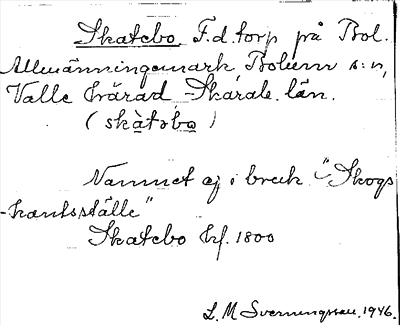 Skatebo F.d. torp på Bol.
Allmänningemark Bolum s:n,
Valle härad Skarab. län.
(skàtəbo)
Namnet ej i bruk. "Skogs
-kantsställe"
Skatebo Hf. 1800
L. M Sverningsson. 1946.